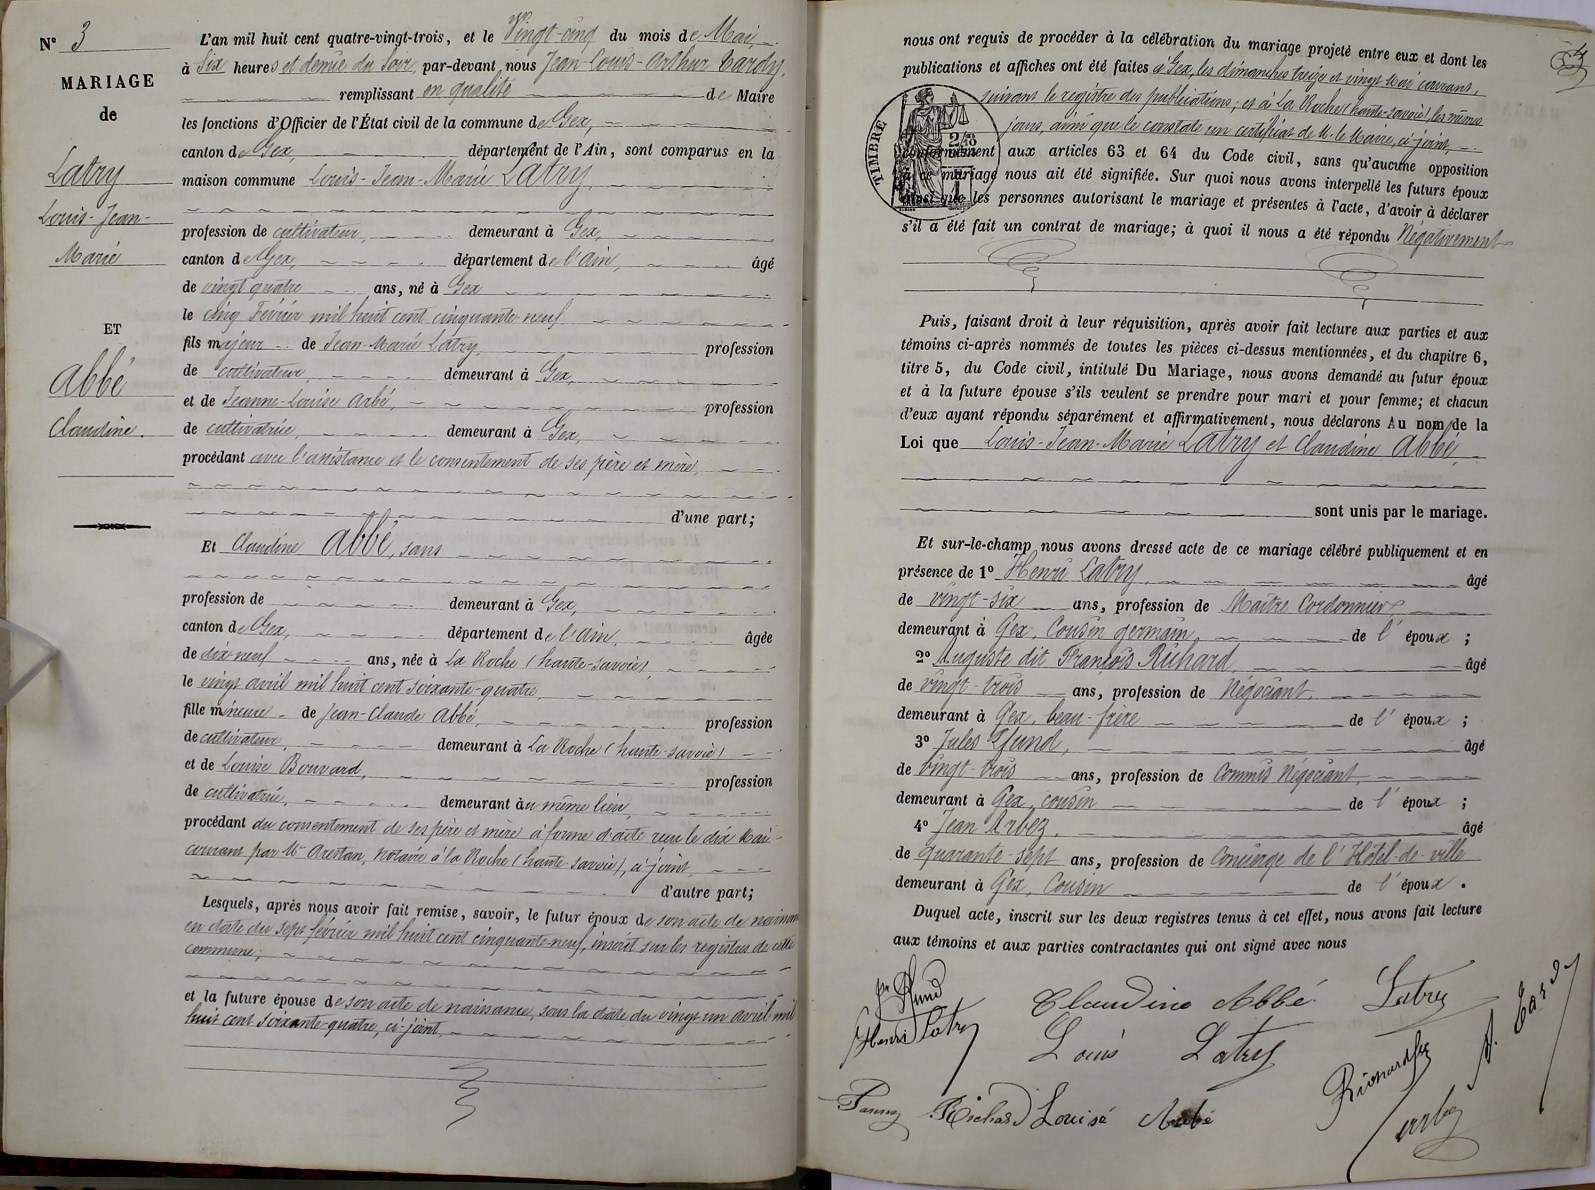 N° 3
MARIAGE
de
Latry
Louis-Jean-
Marie
ET
Abbé
Claudine.
L'an mil huit cent quatre-vingt-trois, et le Vingt-cinq du mois de Mai,
à Six heures et demie du Soir, par-devant, nous Jean-Louis-Arthur Tardy,
remplissant en qualité de Maire
les fonctions d'Officier de l'État civil de la commune de Gex,
canton de Gex, département de l'Ain, sont comparus en la
maison commune Louis-Jean-Marie Latry,
profession de cultivateur, demeurant à Gex,
canton de Gex, département de l'Ain, âgé
de vingt quatre ans, né à Gex
le cinq Février mil huit cent cinquante-neuf
fils majeur de Jean-Marie Latry, profession
de cultivateur, demeurant à Gex,
et de Jeanne-Louise Arbé, profession
de cultivatrice, demeurant à Gex,
procédant avec l'assistance et le consentement de ses père et mère,
d'une part;
Et Claudine Abbé, sans
profession de demeurant à Gex,
canton de Gex, département de l'Ain, âgée
de dix-neuf ans, née à La Roche (haute-savoie),
le vingt avril mil huit cent soixante-quatre
fille mineure de Jean-Claude Abbé, profession
de cultivateur, demeurant à La Roche (haute-savoie)
et de Louise Bouvard, profession
de cultivatrice, demeurant au même lieu,
procédant du consentement de ses père et mère à forme d'acte reçu le dix Mai
courant par Me Arestan, notaire à la Roche (haute-savoie), ci-joint,
d'autre part;
Lesquels, après nous avoir fait remise, savoir, le futur époux de son acte de naissance
en date du sept février mil huit cent cinquante-neuf, inscrit sur les registres de cette
commune;
et la future épouse de son acte de naissance, sous la date du vingt-un avril mil
huit cent soixante-quatre, ci-joint,
nous ont requis de procéder à la célébration du mariage projeté entre eux et dont les
publications et affiches ont été faites à Gex, les dimanches treize et vingt Mai courant,
suivant le registre des publications; et à La Roche (haute-savoie), les mêmes
jours, ainsi que le constate un certificat de M. le Maire, ci-joint,
TIMBRE
conformément aux articles 63 et 64 du Code civil, sans qu'aucune opposition
à ce mariage nous ait été signifiée. Sur quoi nous avons interpellé les futurs époux
ainsi que les personnes autorisant le mariage et présentes à l'acte, d'avoir à déclarer
s'il a été fait un contrat de mariage; à quoi il nous a été répondu Négativement
Puis, faisant droit à leur réquisition, après avoir fait lecture aux parties et aux
témoins ci-après nommés de toutes les pièces ci-dessus mentionnées, et du chapitre 6,
titre 5, du Code civil, intitulé Du Mariage, nous avons demandé au futur époux
et à la future épouse s'ils veulent se prendre pour mari et pour femme; et chacun
d'eux ayant répondu séparément et affirmativement, nous déclarons Au nom de la
Loi que Louis-Jean-Marie Latry et Claudine Abbé,
sont unis par le mariage.
Et sur-le-champ nous avons dressé acte de ce mariage célébré publiquement et en
présence de 1° Henri Latry, âgé
de vingt-six ans, profession de Maître Cordonnier,
demeurant à Gex, Cousin germain, de l'époux;
2° Auguste dit François Richard âgé
de vingt-trois ans, profession de Négociant,
demeurant à Gex, beau-frère de l'époux;
3° Jules Pfund, âgé
de vingt-trois ans, profession de Commis Négociant,
demeurant à Gex, cousin de l'époux;
4° Jean Arbez, âgé
de quarante-sept ans, profession de Concierge de l'Hôtel-de-ville
demeurant à Gex, Cousin de l'époux.
Duquel acte, inscrit sur les deux registres tenus à cet effet, nous avons fait lecture
aux témoins et aux parties contractantes qui ont signé avec nous
Claudine Abbé Latry
Henri Latry Louis Latry A. Tardy
Richard Louise